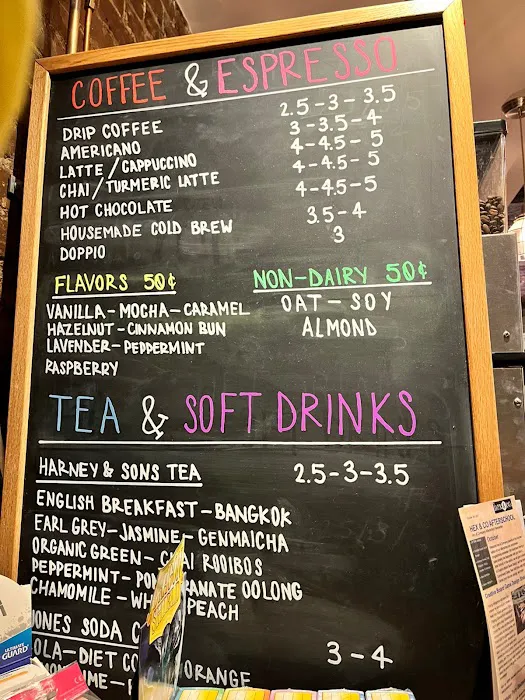 COFFEE & ESPRESSO
DRIP COFFEE 2.5-3-3.5
AMERICANO 3-3.5-4
LATTE/CAPPUCCINO 4-4.5-5
CHAI/TURMERIC LATTE 4-4.5-5
HOT CHOCOLATE 4-4.5-5
HOUSEMADE COLD BREW 3.5-4
DOPPIO 3
FLAVORS 50¢
VANILLA-MOCHA-CARAMEL
HAZELNUT-CINNAMON BUN
LAVENDER-PEPPERMINT
RASPBERRY
NON-DAIRY 50¢
OAT-SOY
ALMOND
TEA & SOFT DRINKS
HARNEY & SONS TEA 2.5-3-3.5
ENGLISH BREAKFAST-BANGKOK
EARL GREY-JASMINE-GENMAICHA
ORGANIC GREEN- ROOIBOS
PEPPERMINT- OOLONG
CHAMOMILE- PEACH
JONES SODA
3-4
-DIET ORANGE
HEX & CO AFTERSCHOOL
ULTIMATE
GUARD